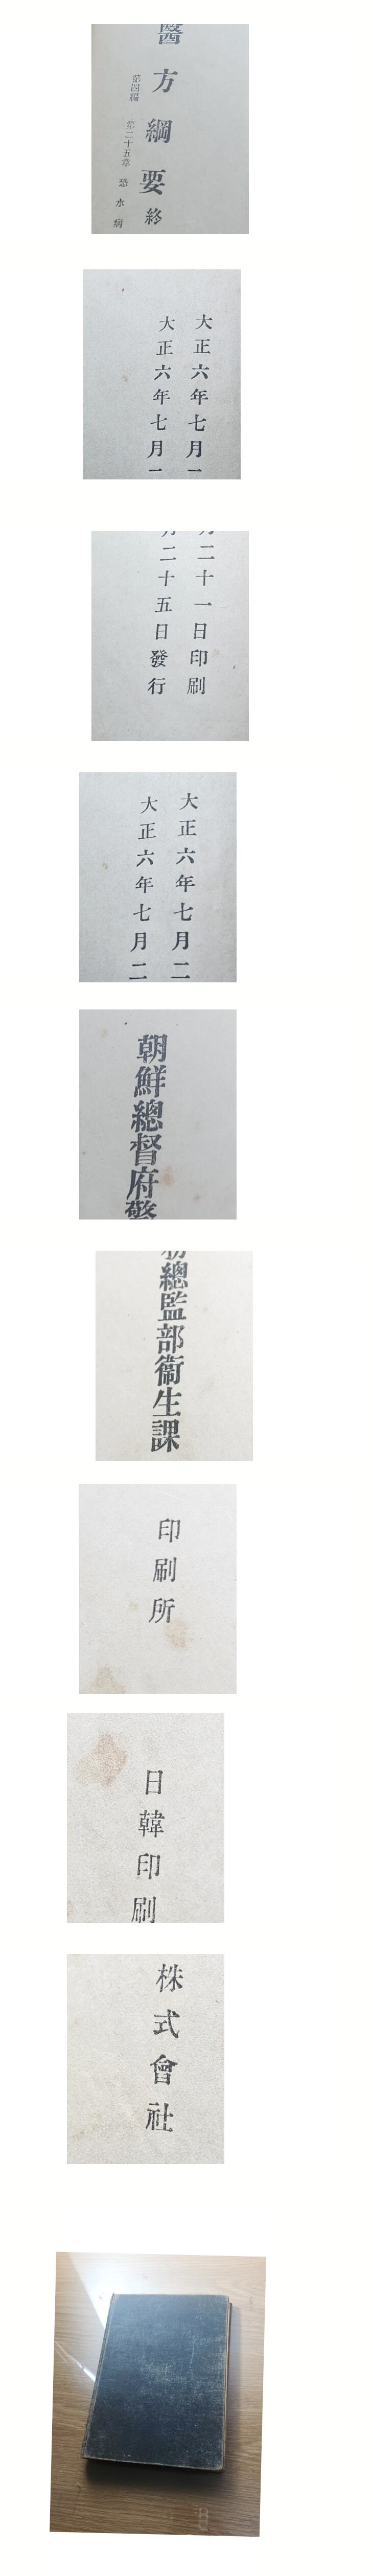 醫方綱要終
第四編 第二十五章 恐水病
大正六年七月一
大正六年七月一
月二十一日印刷
月二十五日發行
大正六年七月二
大正六年七月二
朝鮮總督府警
務總監部衞生課
印刷所
日韓印刷
株式會社